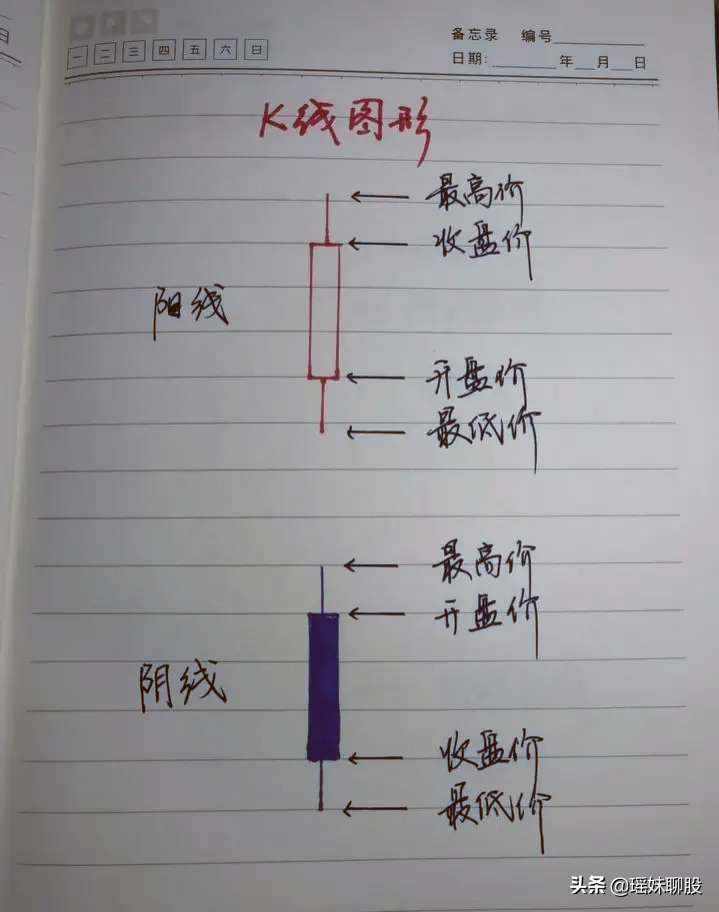 备忘录 编号
一 二 三 四 五 六 日
日期: 年 月 日
K线图形
最高价
收盘价
阳线
开盘价
最低价
最高价
开盘价
阴线
收盘价
最低价
头条 @瑶妹聊股